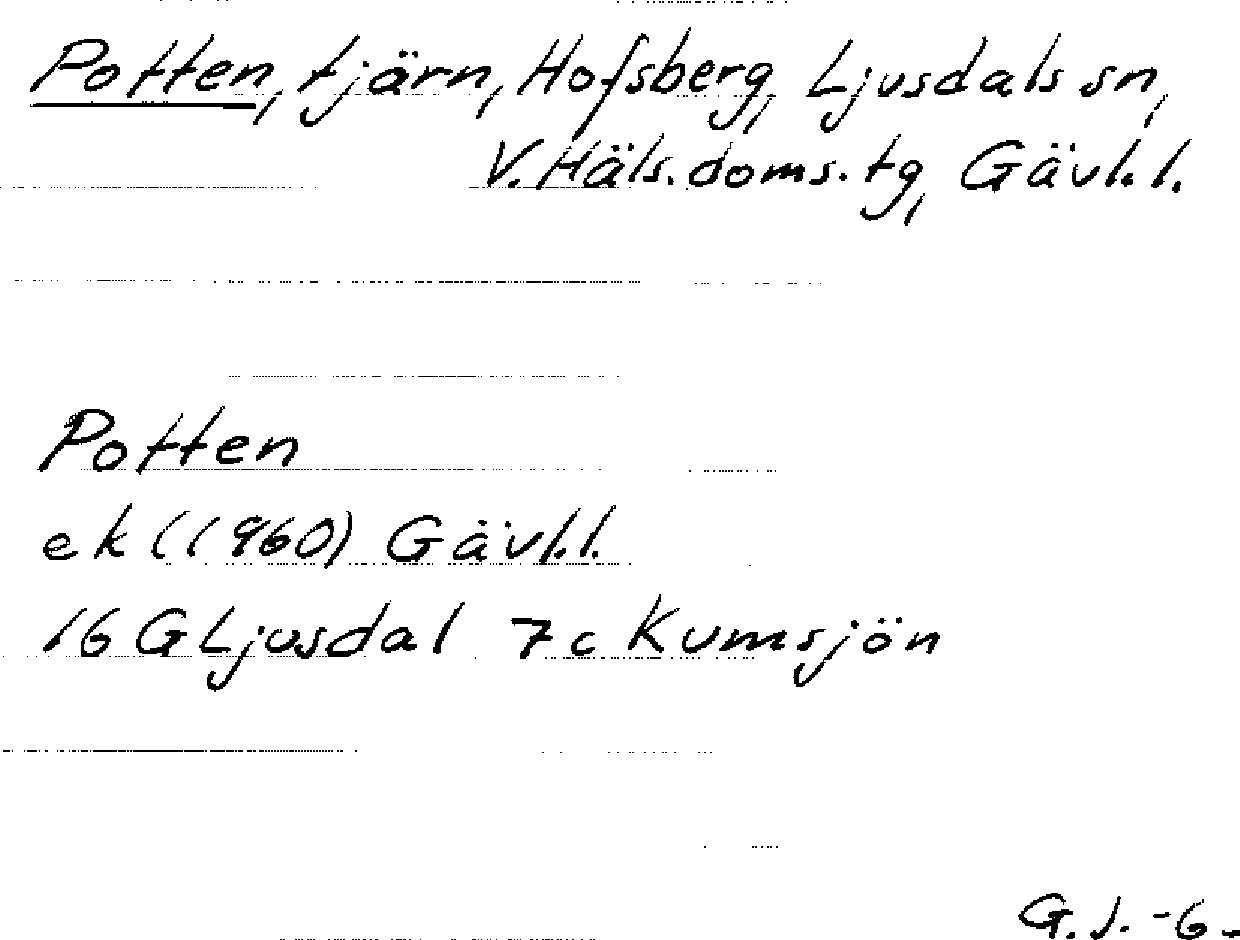 Potten, tjärn, Hofsberg, Ljusdals sn,
V. Häls. doms. tg, Gävl. l.
Potten
ek (1960) Gävl. l.
16 G Ljusdal 7c Kumsjön
G. J. -6-